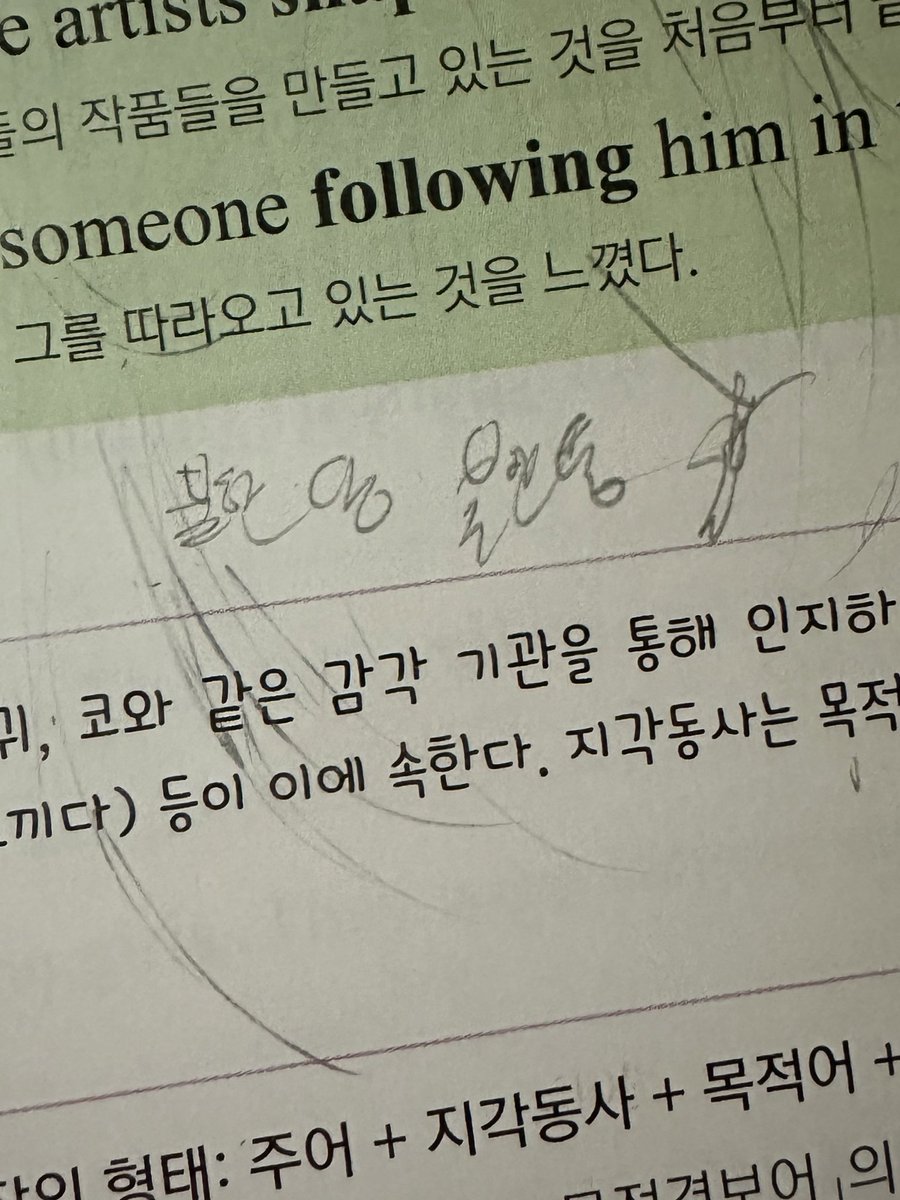 e artists
들의 작품들을 만들고 있는 것을 처음부터
someone following him in
그를 따라오고 있는 것을 느꼈다.
귀, 코와 같은 감각 기관을 통해 인지하
느끼다) 등이 이에 속한다. 지각동사는 목적
형태: 주어 + 지각동사 + 목적어 +
목적격보어 의